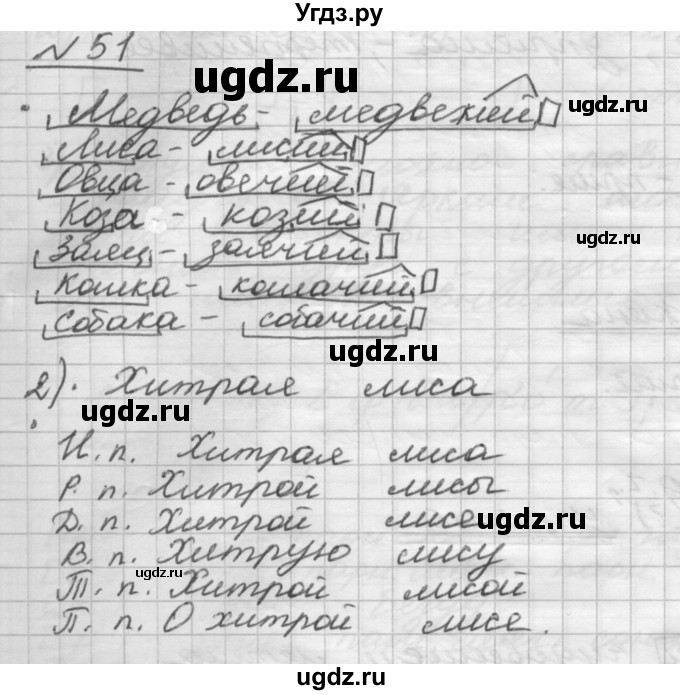 Угдз.ру
N 51
ugdz.ru
Медведь - медвежий
ugdz.ru
Лиса - лисий
Овца - овечий
ugdz.ru
Коза - козий
ugdz.ru
Заяц - заячий
Кошка - кошачий
Собака - собачий
ugdz.ru
2). Хитрая лиса
ugdz.ru
И. п. Хитрая лиса
Р. п. Хитрой лисы
Д. п. Хитрой лисе
ugdz.ru
В. п. Хитрую лису
ugdz.ru
Т. п. Хитрой лисой
П. п. О хитрой лисе.
ugdz.ru